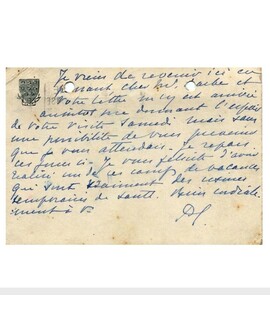 Je viens de revenir ici en
passant, cher M. Barbe et
votre lettre m'y est arrivée
me donnant l'espoir
de votre visite samedi mais sans
une possibilité de vous prévenir
que je vous attendais. Je repars
ces jours-ci. Je vous félicite d'avoir
réalisé un de ces camps de vacances
qui sont vraiment des usines
temporaires de santé. Bien cordiale
ment à v